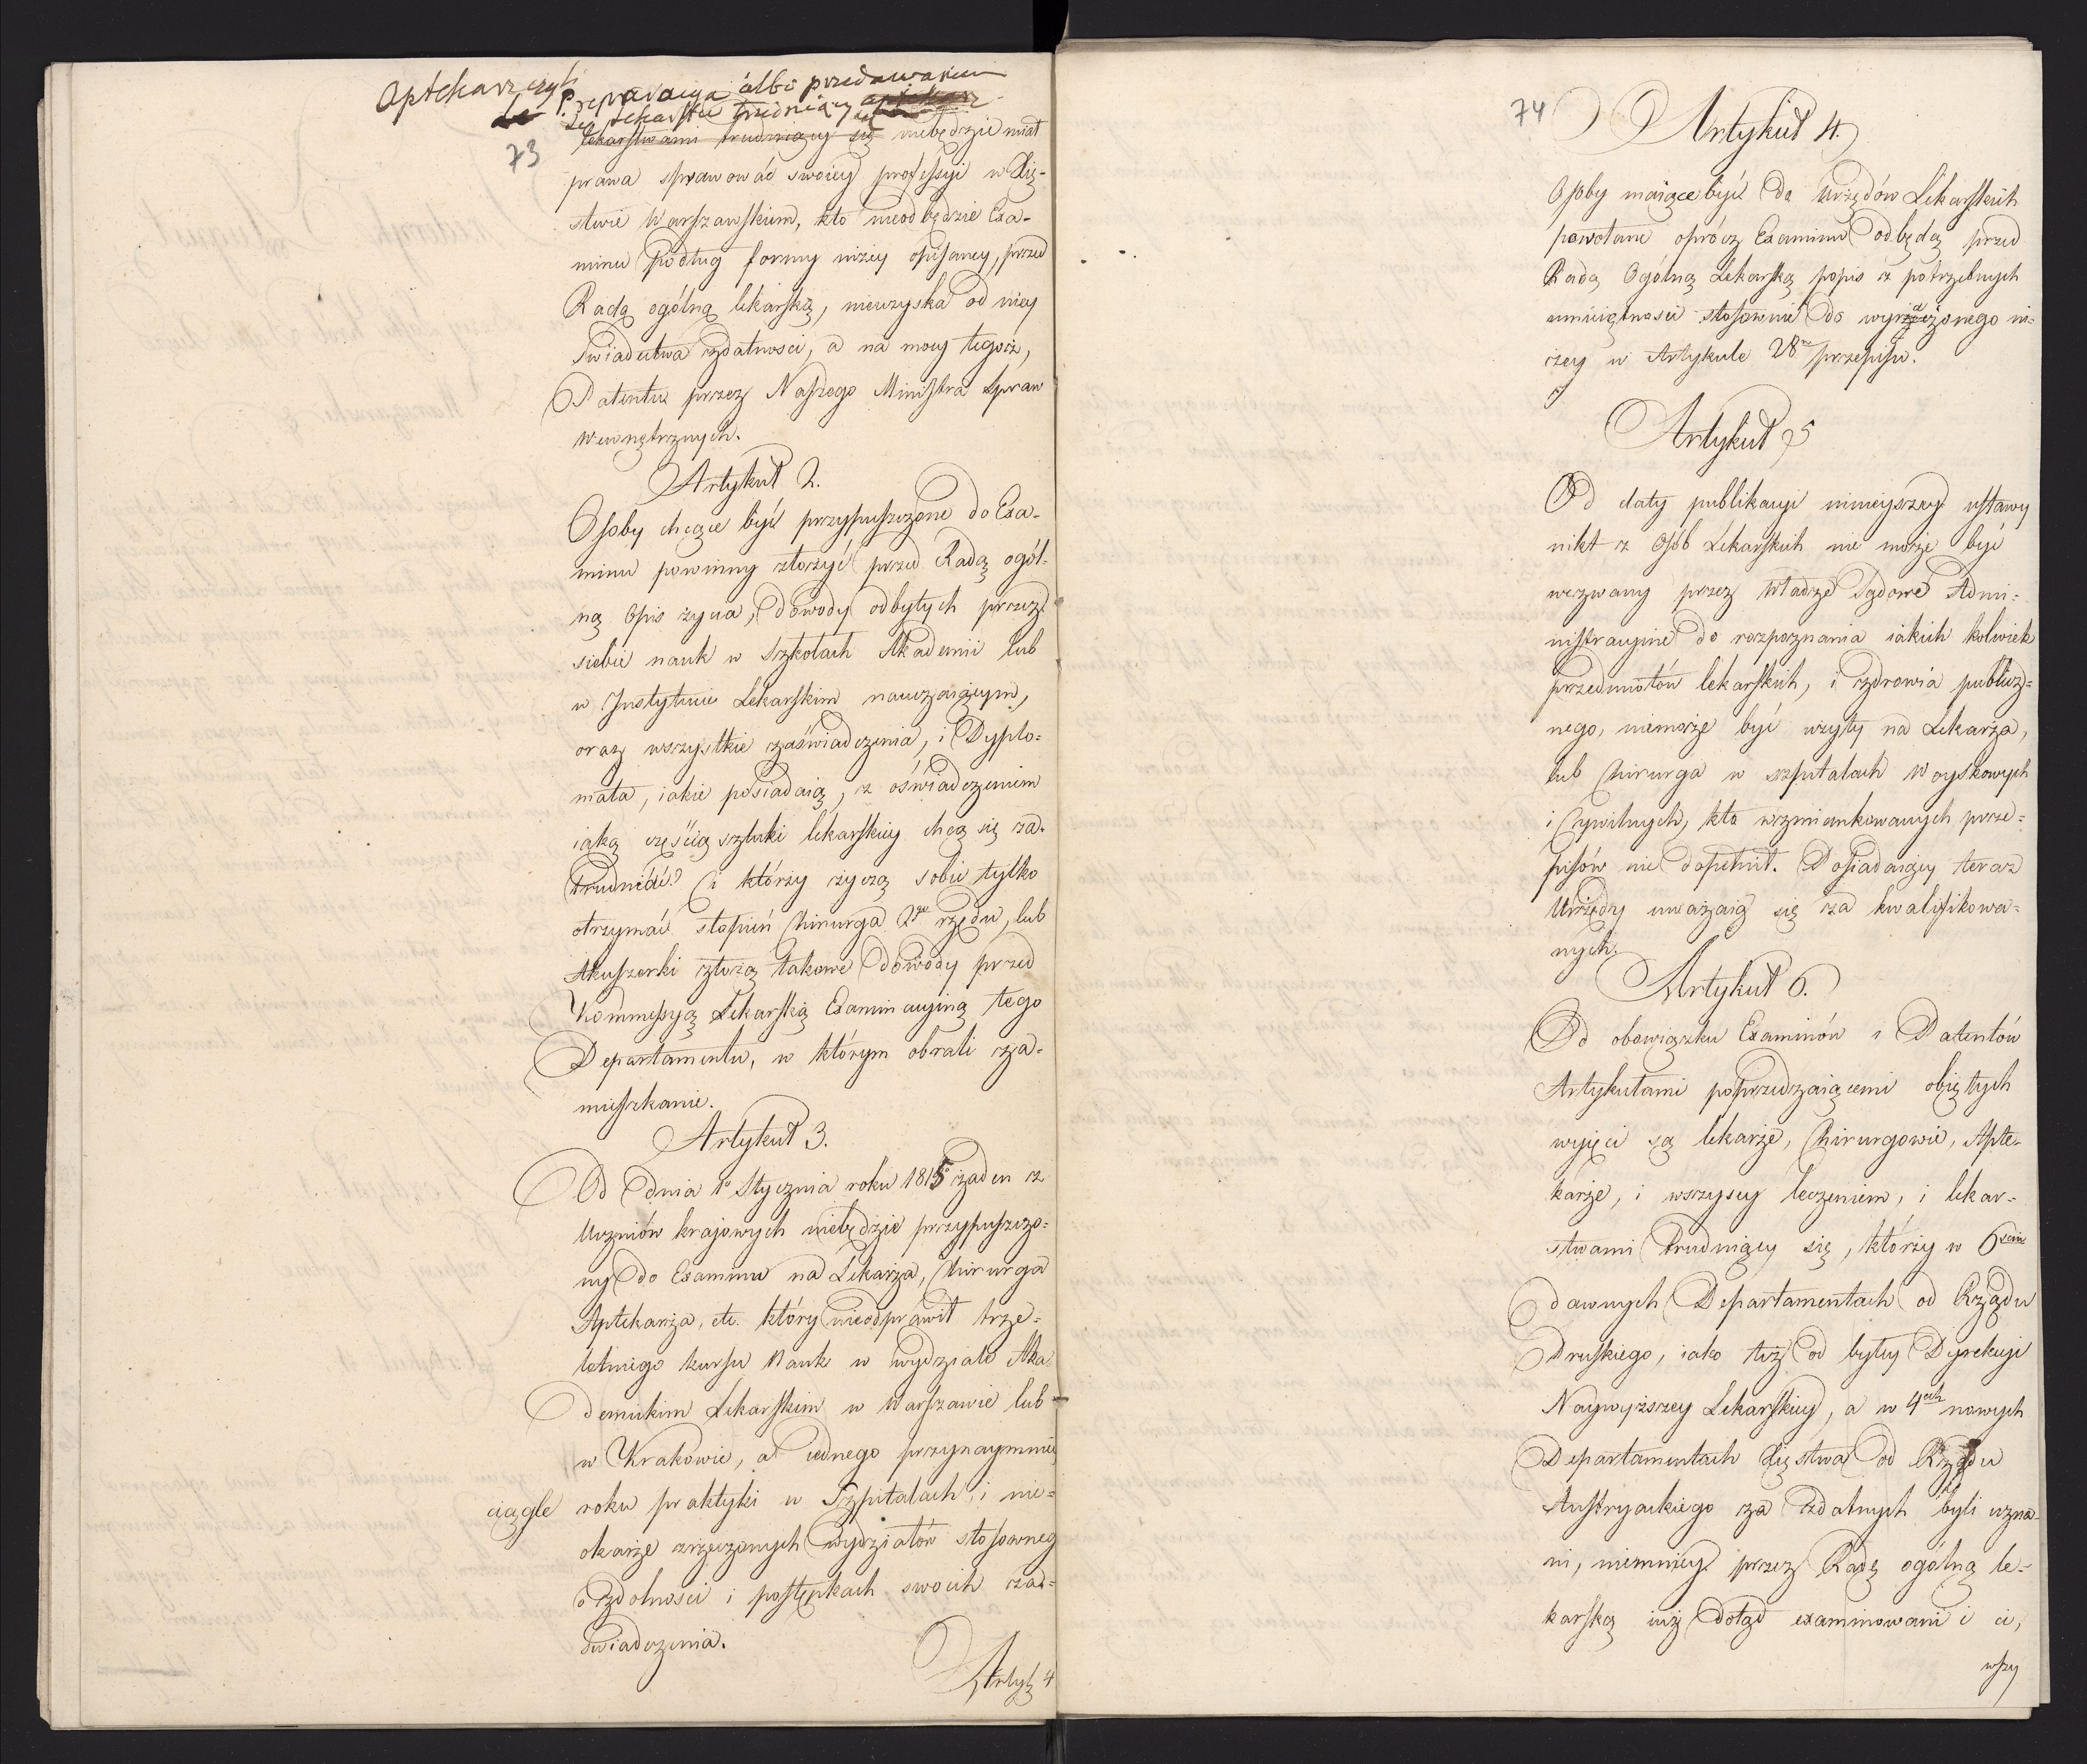 Aptekarz czyli
Preparacyą albo przedawaniem
lekarstw trudniący się aptekarz
73
lekarstwami trudniący się niebędzie miał
prawa sprawować swoiey professyi w Xię-
stwie Warszawskiem, kto nieodbędzie Exa-
minu podług formy niżey opisaney, przed
Radą ogólną lekarską, nieuzyska od niey
Świadectwa zdatności, a na mocy tegoż,
Patentu przez Naszego Ministra Spraw
Wewnętrznych.
Artykuł 2.
Osoby chcące być przypuszczone do Exa-
minu powinny złożyć przed Radą ogól-
ną Opis życia, dowody odbytych przez
siebie nauk w Szkołach Akademii lub
w Instytucie Lekarskim nauczaiącym,
oraz wszystkie zaświadczenia, i Dyplo-
mata, iakie posiadaią, z oświadczeniem
iaką częścią sztuki lekarskiey chcą się za-
trudnić? ci którzy życzą sobie tylko
otrzymać stopień Chirurga 2go rzędu, lub
Akuszerki złożą takowe dowody przed
Kommissyą Lekarską Examinacyiną tego
Departamentu, w którym obrali za-
mieszkanie.
Artykuł 3.
Od dnia 1o Stycznia roku 1815o żaden z
Uczniów krajowych niebędzie przypuszczo-
ny do Examinu na Lekarza, Chirurga
Aptekarza, etc. który nieodprawił trze-
letniego kursu Nauk w wydziale Aka
demickim Lekarskim w Warszawie lub
w Krakowie, a iednego przynaymniey
ciągle roku praktyki w Szpitalach, i nie-
okaże rzeczonych Wydziałów stosowneg
o zdolności i postępkach swoich zaś-
świadczenia.
Artyk 4
74
Artykuł 4.
Osoby maiące być do Urzędów Lekarskich
powołane oprócz Examinu odbędą przed
Radą Ogólną Lekarską popis z potrzebnych
umieiętności stosownie do wyrażonego ni-
żey w Artykule 28m przepisu.
Artykuł 5
Od daty publikacyi ninieyszey ustawy
nikt z Osób Lekarskich nie może być
wezwany przez Władze Sądowe Admi-
nistracyine do rozpoznania iakich kolwiek
przedmiotów lekarskich, i zdrowia publicz-
nego, niemoże być użyty na Lekarza,
lub Chirurga w szpitalach Woyskowych
i Cywilnych, kto wzmiankowanych prze-
pisów nie dopełnił. Posiadaiący teraz
Urzędy uważaią się za kwalifikowa-
nych.
Artykuł 6.
Od obowiązku Examinów i Patentów
Artykułami poprzedzaiącemi obiętych
wyięci są lekarze, Chirurgowie, Apte-
karze, i wszyscy leczeniem, i lekar-
stwami trudniący się, którzy w 6ściu
dawnych Departamentach od Rządu
Pruskiego, iako też od byłey Dyrekcyi
Naywyższey Lekarskiey, a w 4ech nowych
Departamentach Xięstwa od Rządu
Austryackiego za zdatnych byli uzna-
ni, niemniey przez Radę ogólną le-
karską iuż dotąd examinowani i ci,
wszy